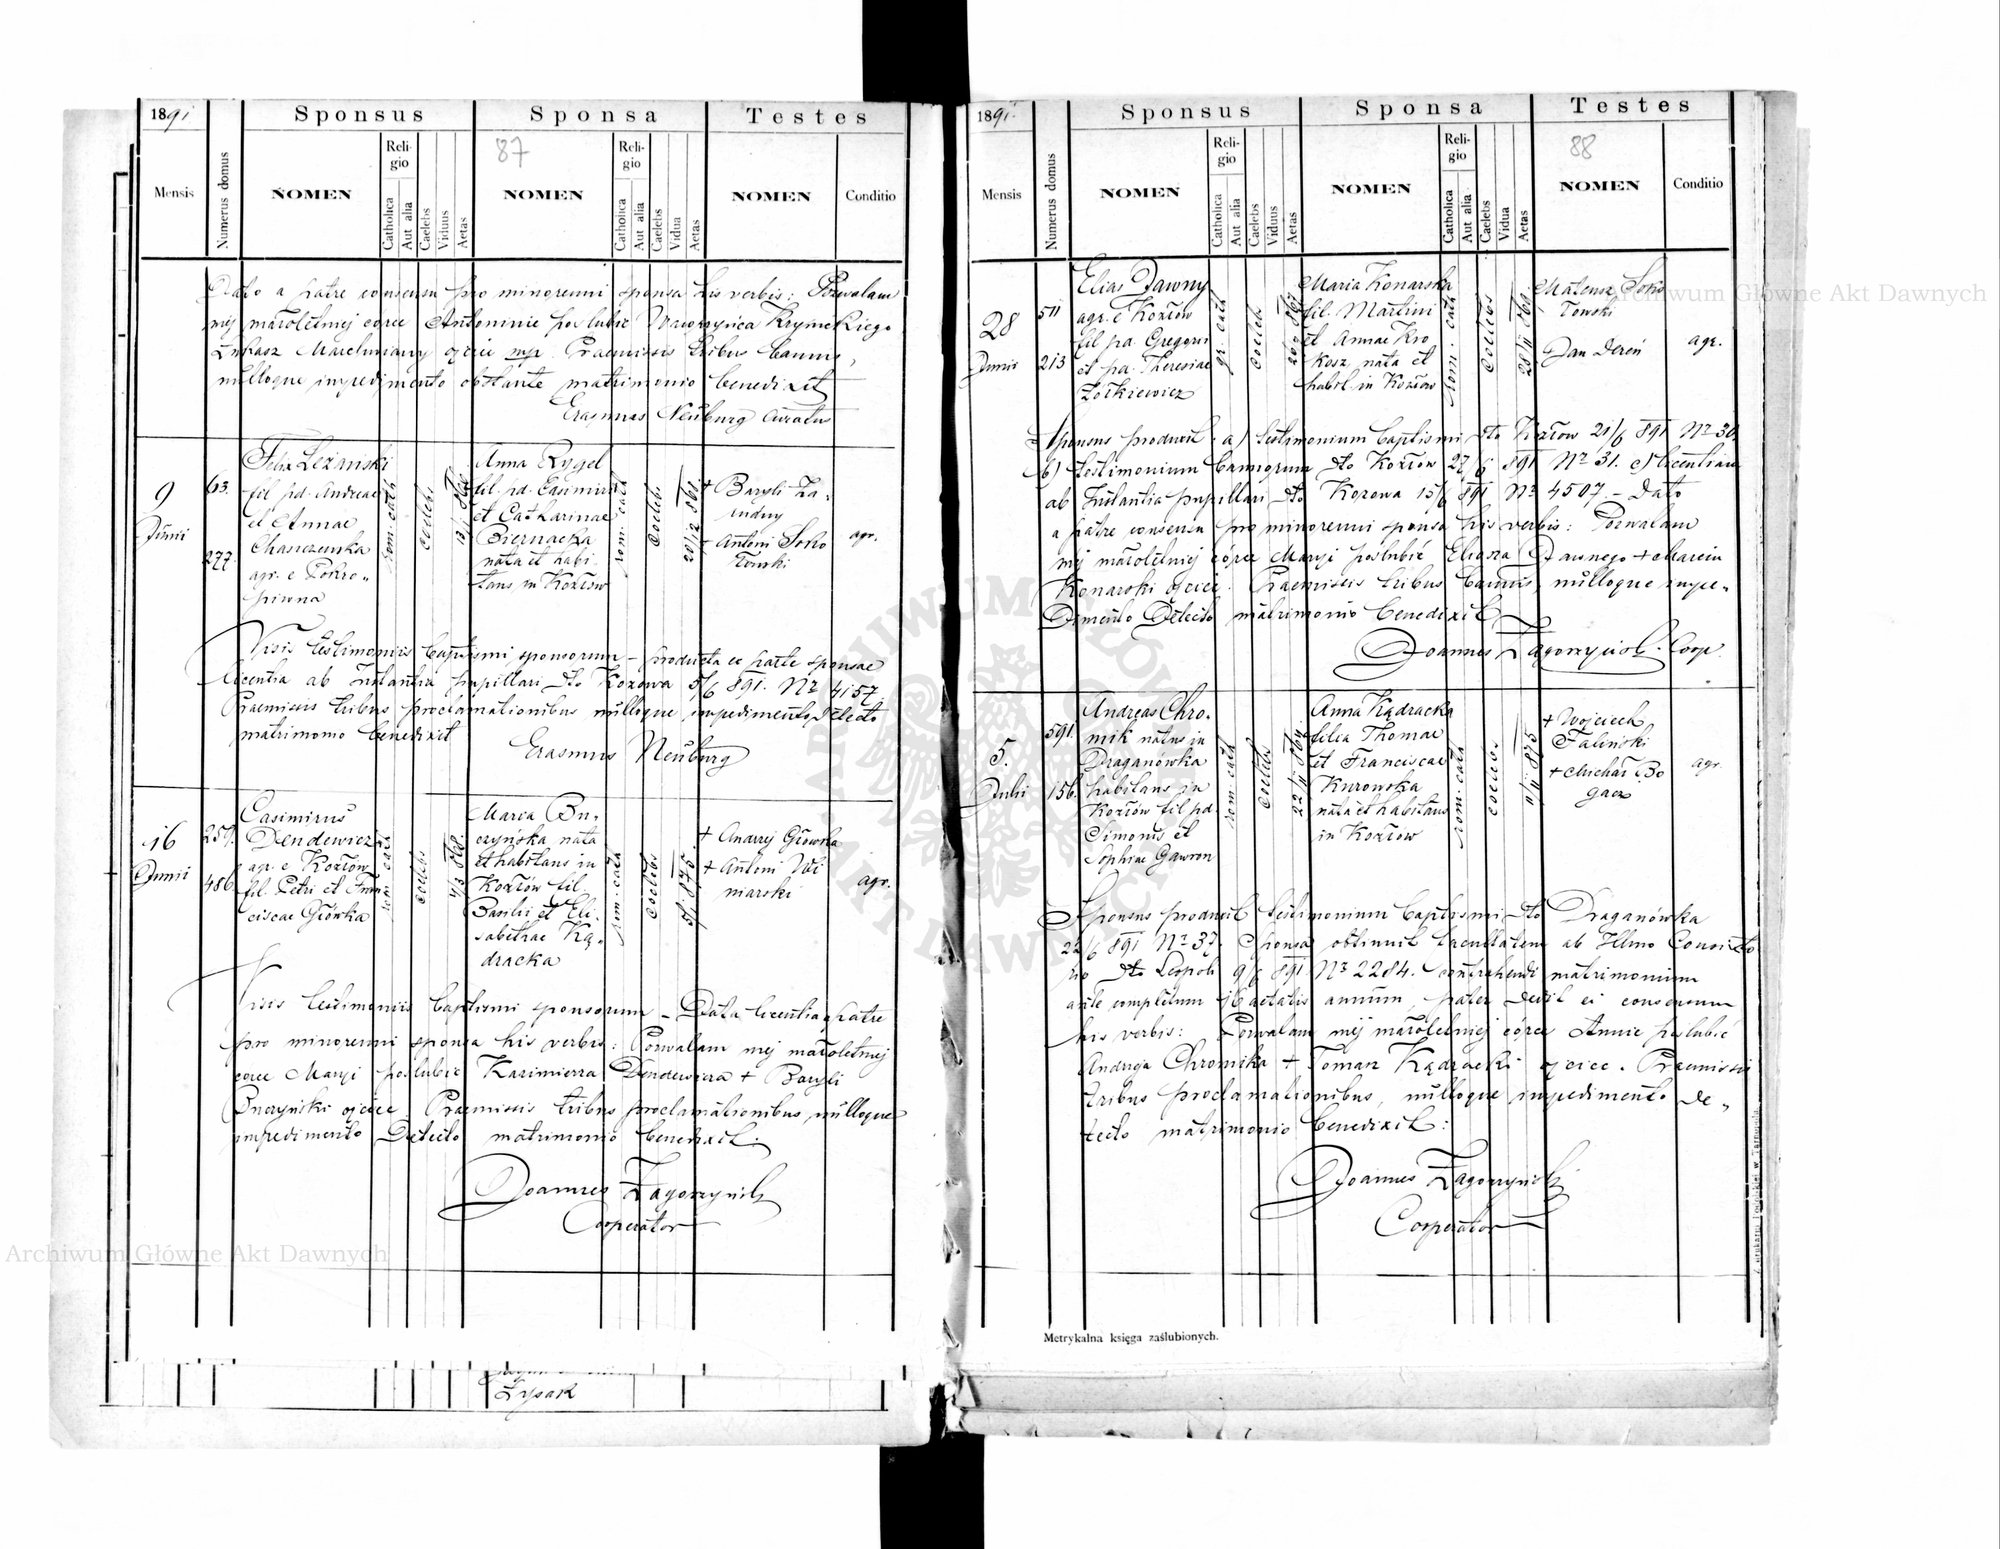 1891
Sponsus
Sponsa
Testes
87
Mensis
Numerus domus
NOMEN
Religio
Catholica
Aut alia
Caelebs
Viduus
Aetas
NOMEN
Religio
Catholica
Aut alia
Caelebs
Vidua
Aetas
NOMEN
Conditio
Dato a patre consensu pro minorenni sponsa his verbis: Pozwalam
mej małoletniej córce Antoninie poslubić Wawrzyńca Krynickiego
Łukasz ojciec mp. Praemissis tribus bannis,
nulloque impedimento obstante matrimonio benedixit
Erasmus Neuburg curatus
9
Junii
63.
277
Felix Leżanski
fil. pd. Andreae
et Annae
Charczewska
agr. e Pokro-
piwna
rom. cath
coelebs
Anna Rygel
fil. pd. Casimiri
et Catharinae
Biernacka
nata et habi-
tans in Kozłow
rom. cath
coelebs
+ Baryli Za-
+ Antoni Soko
łowski
agr.
Visis testimoniis baptismi sponsorum - producta ex parte sponsae
licentia ab Instantia pupillari dto Kozowa 5/6 891. Nr 4157.
Praemissis tribus proclamationibus nulloque impedimento detecto
matrimonio benedixit
Erasmus Neuburg
16
Junii
259.
486
Casimirus
Dendewicz
agr. e Kozłow
fil. Petri et Fran
ciscae Głowka
rom. cath
coelebs
Maria Bu-
czyńska nata
et habitans in
Kozłów fil.
Basilii et Eli-
sabethae Ką-
dracka
rom. cath
coelebs
+ Andrzej Głowka
+ Antoni Wi
niarski
agr.
Visis testimoniis baptismi sponsorum - Data licentia a patre
pro minorenni sponsa his verbis: Pozwalam mej małoletniej
córce Maryi poslubic Kazimierza Dendewicza + Baryli
Buczyński ojciec. Praemissis tribus proclamationibus, nulloque
impedimento detecto matrimonio benedixit.
Joannes Zagorzycki
Cooperator
Łysak
1891.
Sponsus
Sponsa
Testes
88
Mensis
Numerus domus
NOMEN
Religio
Catholica
Aut alia
Caelebs
Viduus
Aetas
NOMEN
Religio
Catholica
Aut alia
Caelebs
Vidua
Aetas
NOMEN
Conditio
28
Junii
511
213
Elias Dawny
agr. e Kozłów
fil. pd. Gregorii
et pd. Theresiae
Żołkiewicz
gr. cath
coelebs
Maria Konarska
fil. Martini
et Annae Kro
kosz, nata et
habit. in Kozłow
rom. cath
coelebs
Mateusz Soko
łowski
Jan Dereń
agr.
Sponsus produxit: a) testimonium baptismi dto Kozłow 21/6 891 Nr 30.
b) testimonium bannorum dto Kozłow 27/6 891 Nr 31. c) licentiam
ab Instantia pupillari dto Kozowa 15/6 891 Nr 4507. - Dato
a patre consensu pro minorenni sponsa his verbis: Pozwalam
mej małoletniej córce Maryi poślubić Eliasza Dawnego + Marcin
Konarski ojciec. Praemissis tribus bannis, nulloque impe-
dimento detecto matrimonio benedixit
Joannes Zagorzycki. Coop.
5.
Julii
591.
156.
Andreas Chro-
mik natus in
Draganówka
habitans in
Kozłów fil. pd.
Simonis et
Sophiae Gawron
rom. cath
coelebs
Anna Kądracka
filia Thomae
et Franciscae
Kurowska
nata et habitans
in Kozłow
rom. cath
coelebs
+ Wojciech
Faliński
+ Michał Bo
gacz
agr.
Sponsus produxit testimonium baptismi dto Draganówka
22/6 891 Nr 37. Sponsa obtinuit facultatem ab Illmo Consisto
rio dto Leopoli 9/6 891 Nr 2284. contrahendi matrimonium
ante completum 16 aetatis annum, pater dedit ei consensum
his verbis: Pozwalam mej małoletniej córce Annie poslubić
Andrzeja Chromika + Tomasz Kądracki ojciec. Praemissis
tribus proclamationibus, nulloque impedimento de-
tecto matrimonio benedixit:
Joannes Zagorzycki
Cooperator
Metrykalna księga zaślubionych.
Archiwum Główne Akt Dawnych
Archiwum Główne Akt Dawnych
ARCHIWUM GŁÓWNE AKT DAWNYCH